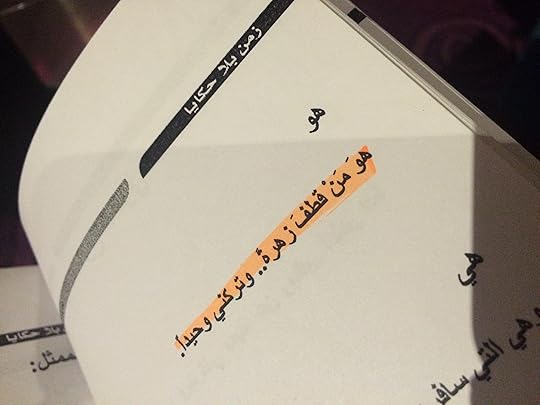 زمن بلا حكايا
هو
هوَ مَنْ قطفَ زهرةً.. وتركني وحيداً.
هي
وهي التي سافر
بلا حكايا
ممثل: